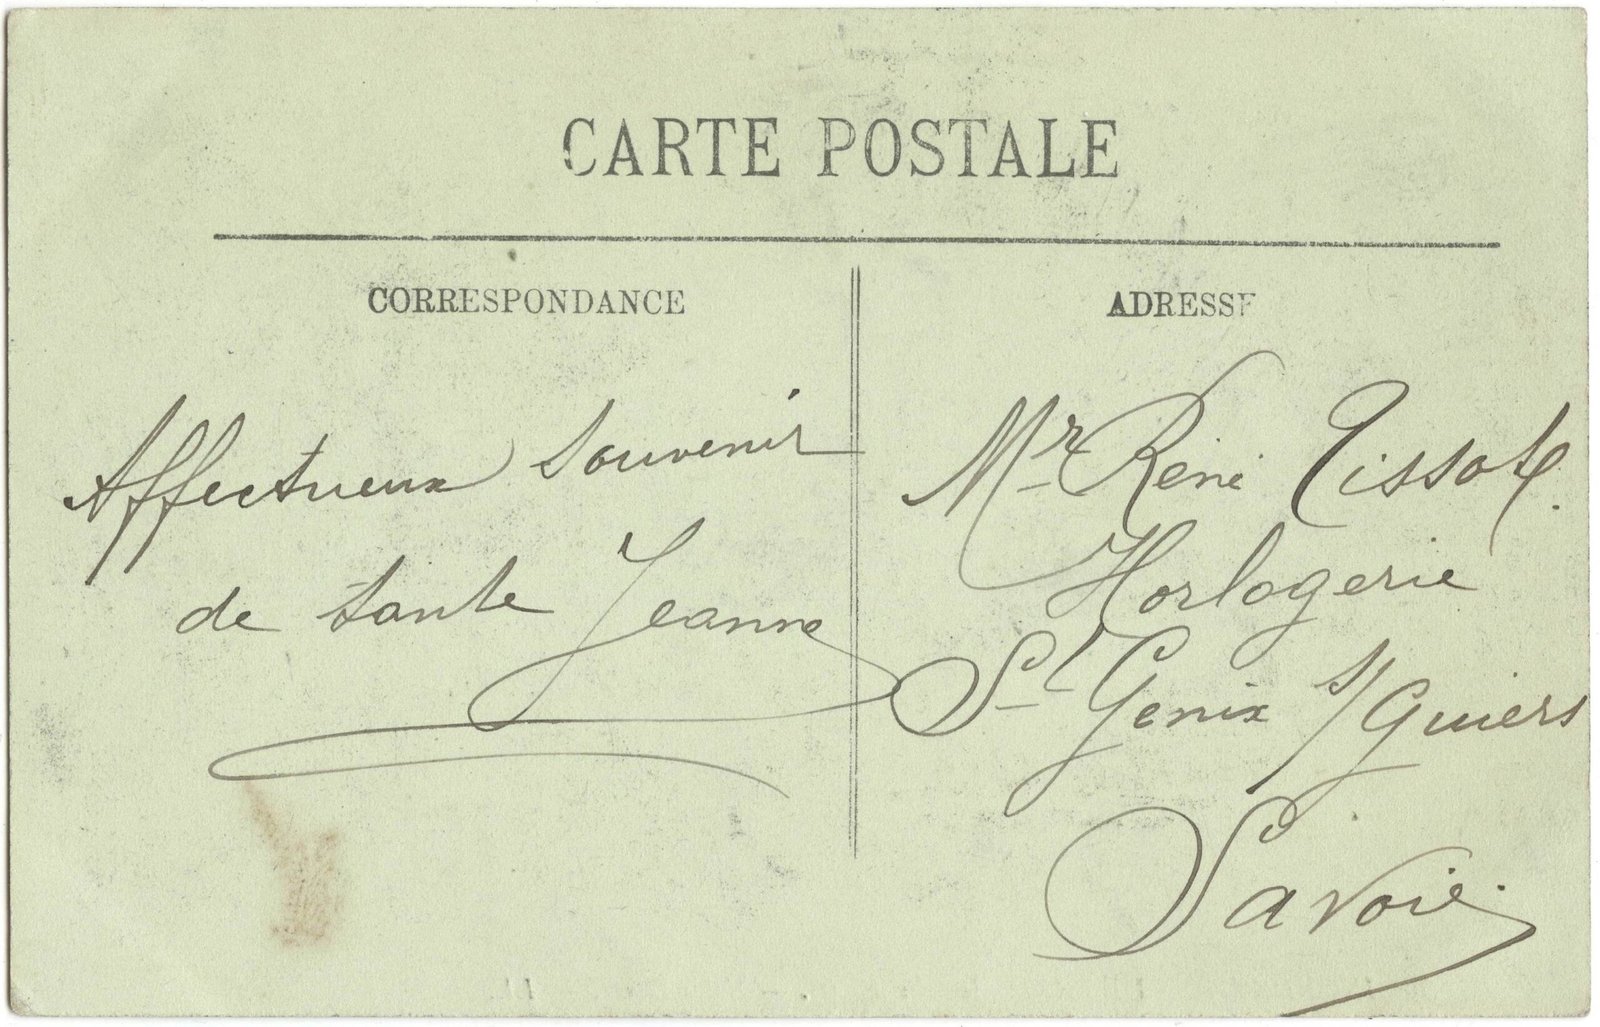 CARTE POSTALE
CORRESPONDANCE
Affectueux Souvenir
de tante Jeanne
ADRESSE
Mr René Tissot.
Horlogerie
St Genix s/Guiers
Savoie.